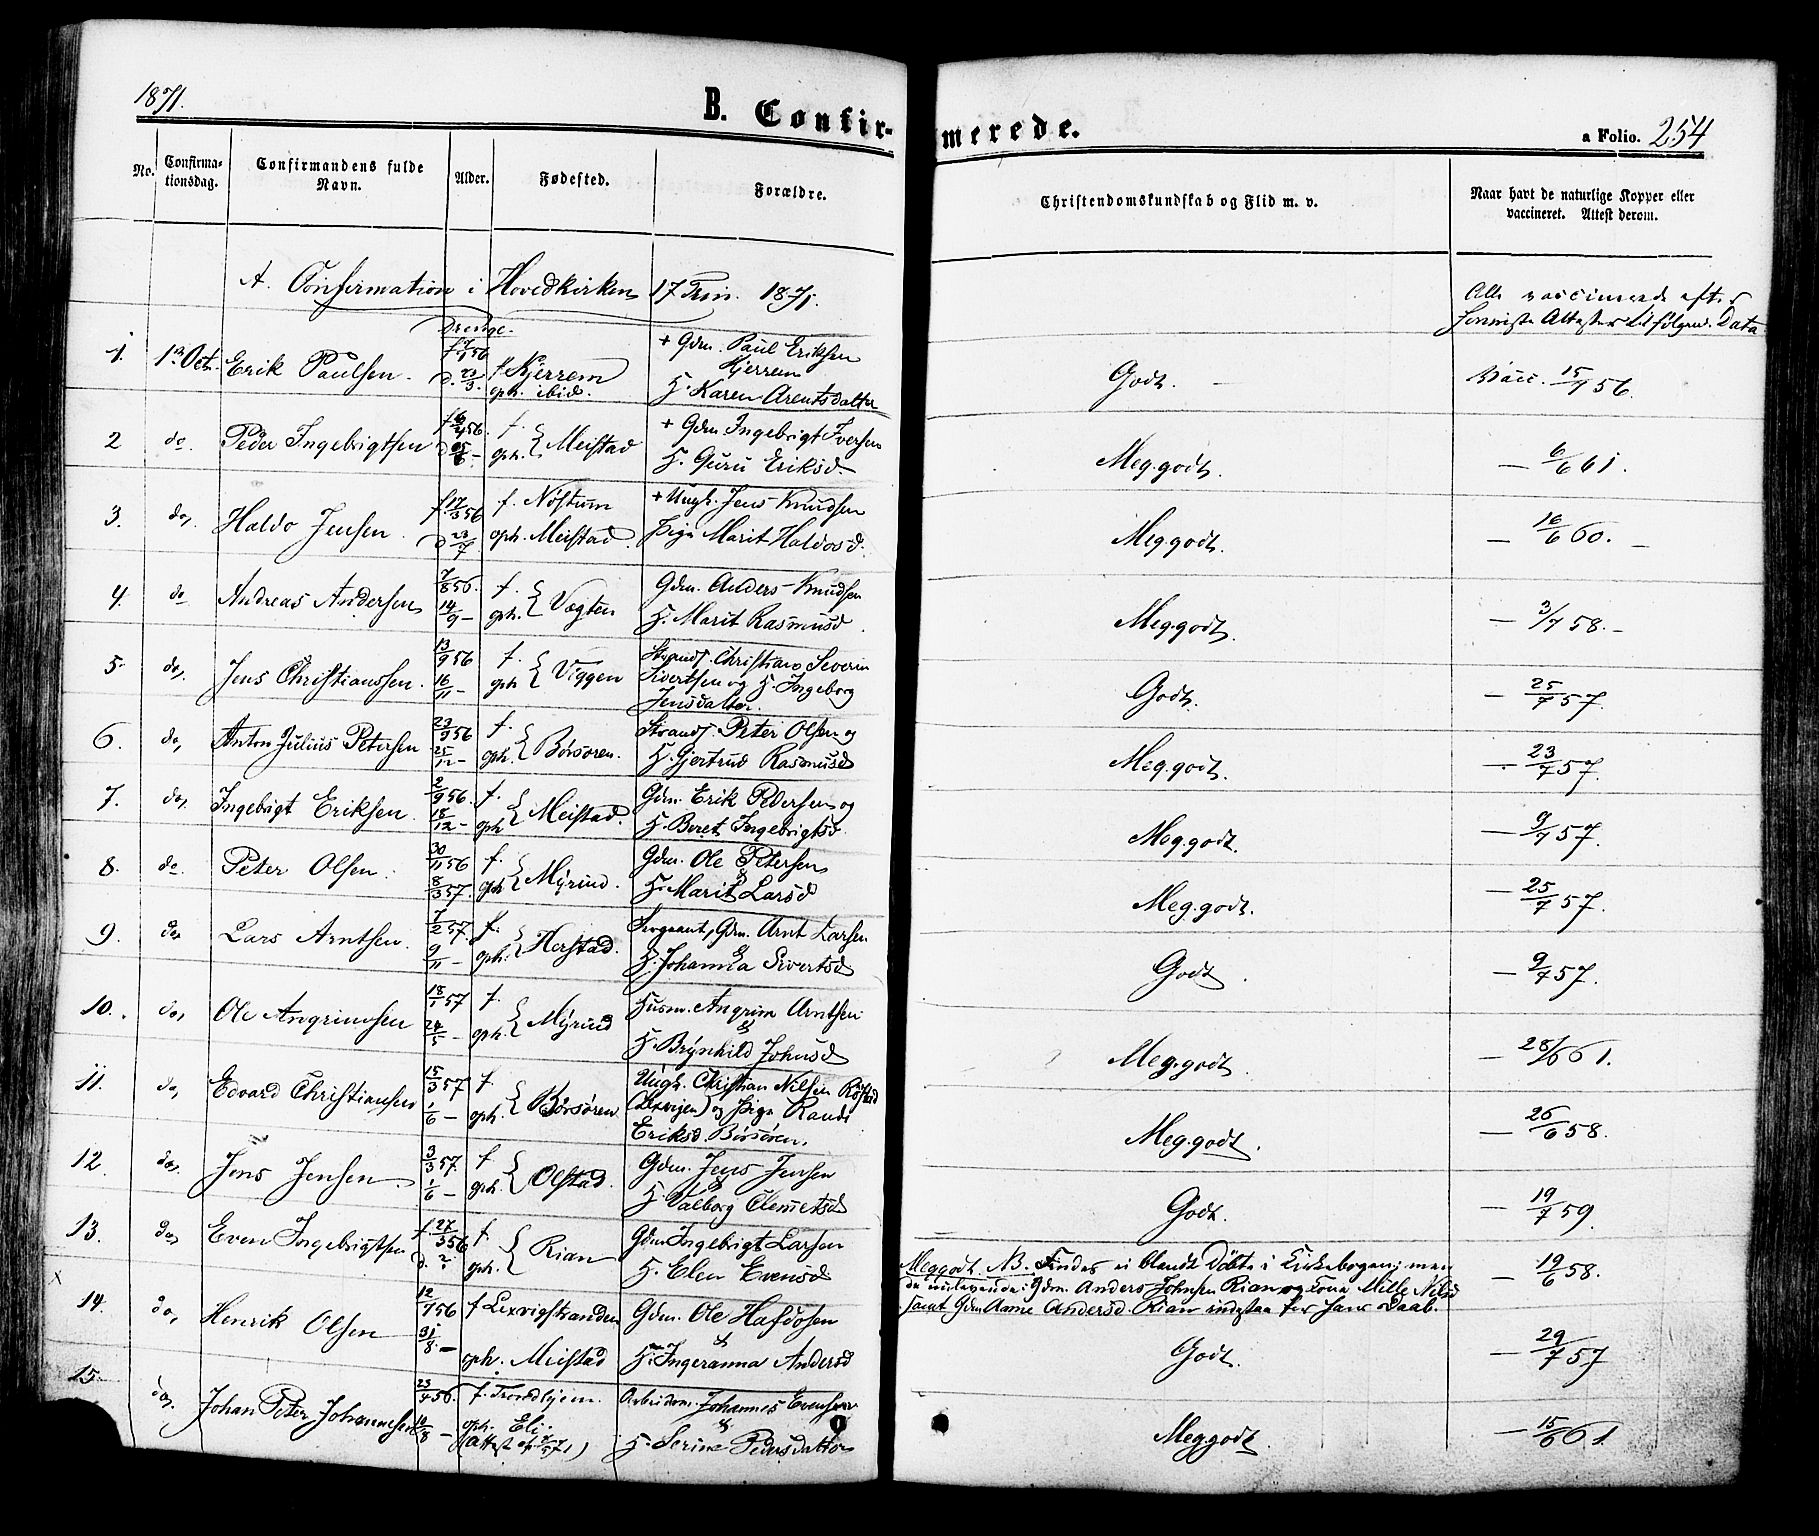 1871.
B. Confir-merede.
a Folio. 254
No. Confirma-tionsdag. Confirmandens fulde Navn. Alder. Fødested. Forældre. Christendomskundskab og Flid m. v. Naar havt de naturlige Kopper eller vaccineret. Attest derom.
A. Confirmation i Hovedkirken 17 Trin. 1871.
Drenge.
Alle vaccinerede efter
Attester
Data
1. 1ste Oct. Erik Paulsen. f. Kjerrem + Gdm. Paul Eriksen
d. 23/3 oph. ibid. Kjerrem
K. Karen Arentsdatter Godt. Vacc. 15/7 56.
2 do. Peder Ingebrigtsen f. oph. Meistad + Gdm Ingebrigt Iversen
K. Guru Eriksd. Meg.godt. — 6/6 61.
3. do. Haldo Jensen f. 17/3 56 f. Nøstum + Ungk. Jens Knudsen
d. 23/7 oph. Meistad. Pige Marit Haldosd. Meg.godt. — 16/6 60. —
4. do Andreas Andersen 7/8 56. f. oph. Vægten Gdm. Anders Knudsen
14/9 — K. Marit Rasmusd. Meg.godt. — 3/7 58. —
5. do. Jens Christianssen. 13/9 56 f. oph. Viggen Strands. Christian Severin
16/11 — Sivertsen og K. Ingeborg
Jensdatter. Godt. — 25/7 57.
6. do. Anton Julius Petersen 23/9 56 f. oph. Børsøren. Strands. Peter Olsen og
25/12 — K. Gjertrud Rasmusd Meg.godt. — 23/7 57.
7. do. Ingebrigt Eriksen. 2/9 56. f. oph Meistad. Gdm. Erik Pedersen og
18/12 — K. Beret Ingebrigtsd. Meg.godt. — 9/7 57.
8. do Peter Olsen. 30/11 56 f. oph Myrind. Gdm. Ole Petersen
8/3 57. & K. Marit Larsd Meg.godt. — 25/7 57.
9. do. Lars Arntsen. 7/2 57. f. oph. Herstad. Sergeant, Gdm. Arnt Larsen
9/11 — K. Johanna Sivertsd Godt. — 9/7 57.
10. do. Ole Angrimsen 18/1 57 f. oph. Myrind Husm. Angrim Arntsen
24/5 — & K. Brynhild Johnsd Meg.godt. — 28/6 61.
11. do. Edvard Christiansen 15/3 57 f. oph. Børsøren Ungk. Christian Nilsen Røstad
1/6 — (Lexvigen) og Pige Randi
Eriksd. Børsøren. Meg.godt. — 26/6 58.
12. do. Jens Jensen. 3/3 57. f. oph. Olstad. Gdm. Jens Jensen
1/6 — & K. Valborg Clemetsd Godt. — 19/7 59.
13. do, Even Ingebrigtsen f. 27/3 56 f. oph. Rian Gdm Ingebrigt Larsen
d. ? K. Elen Evensd
Meggodt. NB. Findes ei blandt Döbte i Kirkebogen; men
de nulevende: Gdm Anders Johnsen Rian og Kona Mille Nilsd
samt Gdm Anne Andersd. Rian indestaa for hans Daab. — 19/6 58.
14. do, Henrik Olsen 12/7 56 f Lexvigstranden Gdm. Ole Haldosen
31/8 — oph. Meistad & K. Ingeranna Andersd Godt. — 29/7 57
15. do. Johan Peter Johannesen 23/4 56. f. Trondhjem. Arbeidsm. Johannes Evensen
10/8 — oph. Eli
(Attest af 71) & K. Serine Pedersdatter Meggodt — 15/6 61.